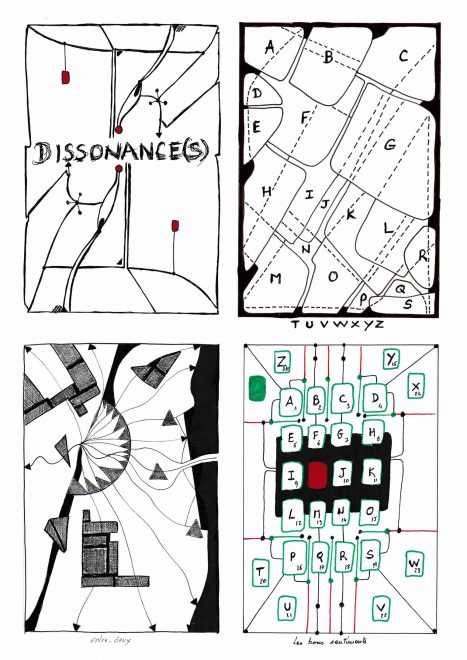 DISSONANCE(S)
A B C
D
E F G
H I J K L
N R
M O P Q S
TUVWXYZ
entre-deux
Z Y 25
X 24
A 1 B 2 C 3 D 4
E 5 F 6 G 7 H 8
I 9 J 10 K 11
L 12 M 13 N 14 O 15
P 16 Q R 18 S 19
T 20 W 23
U 21 V 22
Les bons sentiments